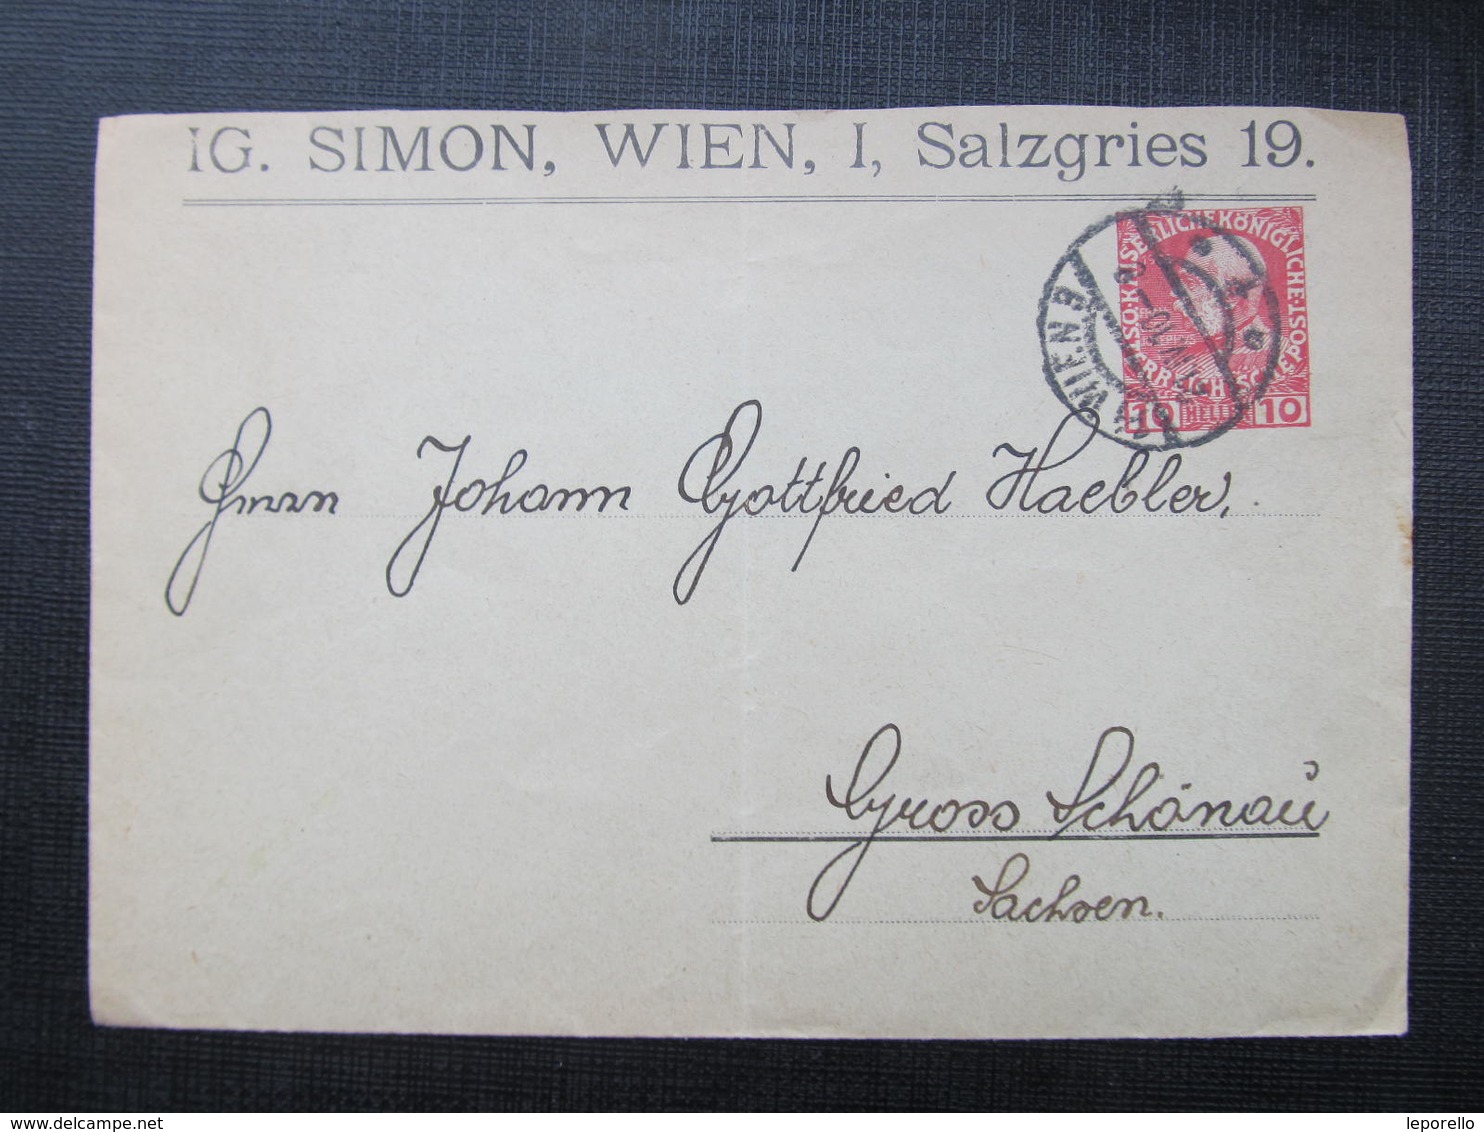 IG. SIMON, WIEN, I, Salzgries 19.
KAISERLICHE KÖNIGLICHE
ÖSTERREICHISCHE POST
10 HELLER 10
WIEN
Herrn Johann Gottfried Haebler,
Gross Schönau
Sachsen.
delcampe.net
leporello